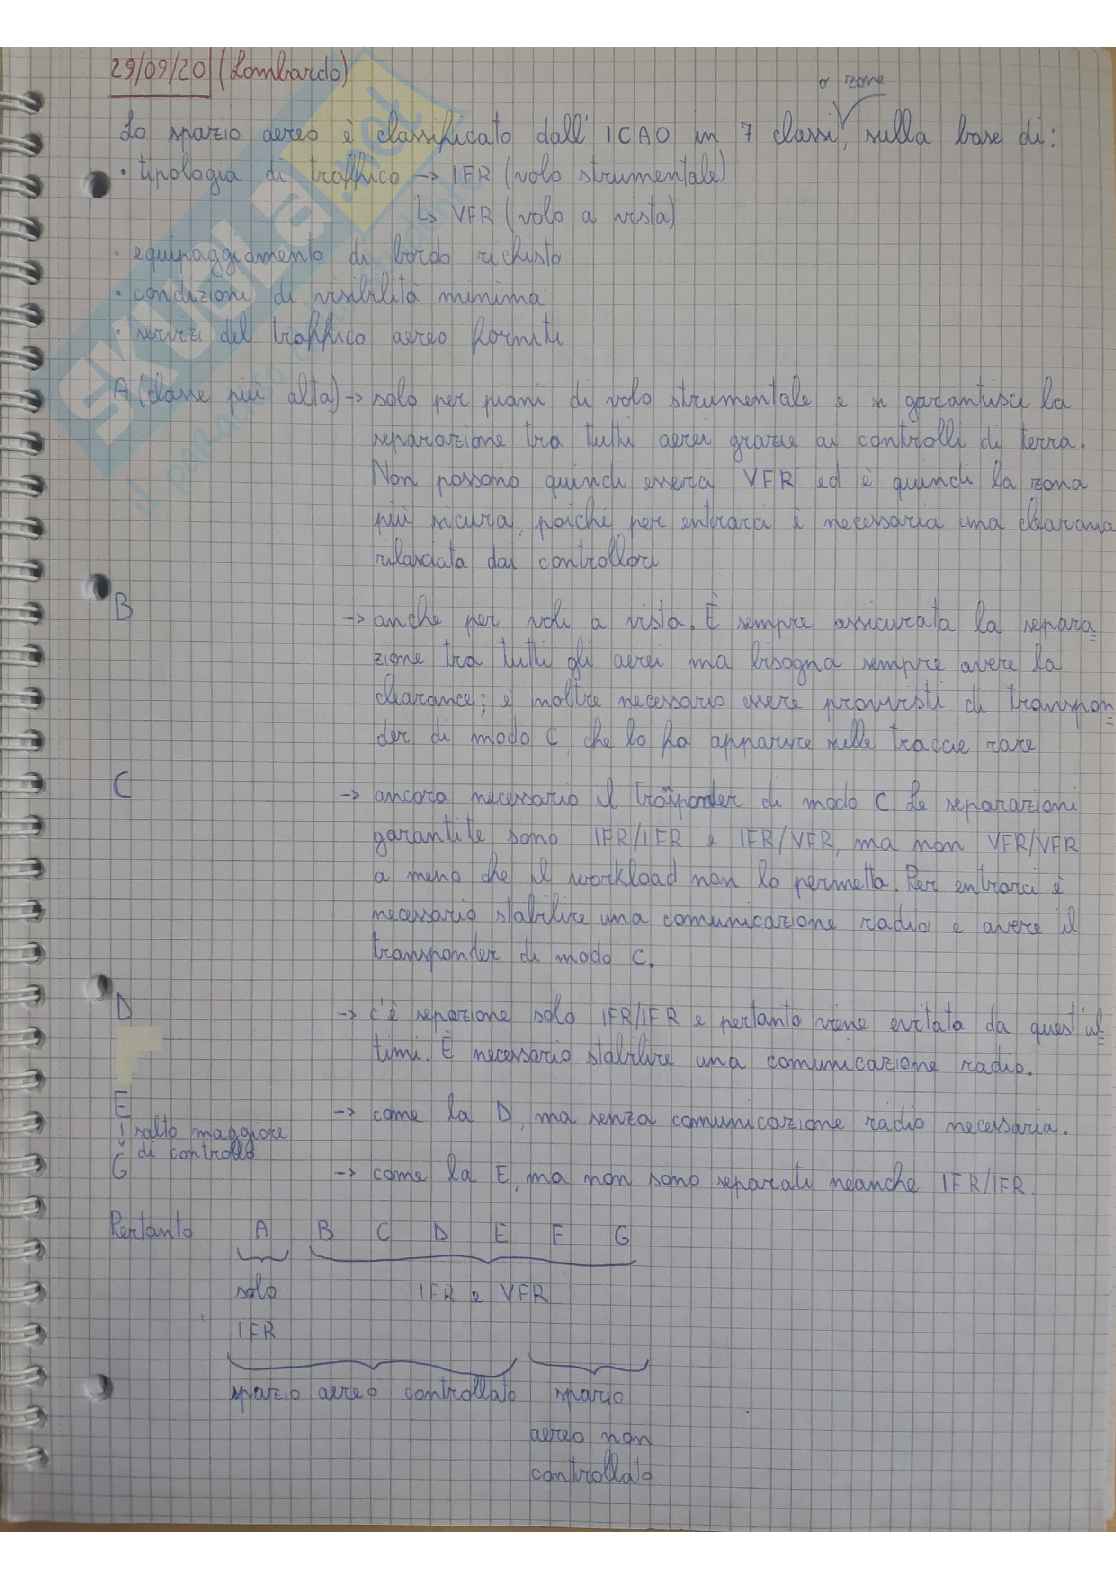 29/09/20 (Lombardo)
o zone
Lo spazio aereo è classificato dall' ICAO in 7 classi, sulla base di:
· tipologia di traffico -> IFR (volo strumentale)
↳ VFR (volo a vista)
· equipaggiamento di bordo richiesto
· condizioni di visibilità minima
· servizi del traffico aereo forniti
A (classe più alta) -> solo per piani di volo strumentale e si garantisce la
separazione tra tutti aerei grazie ai controlli di terra.
Non possono quindi esserci VFR ed è quindi la zona
più sicura, poiché per entrarci è necessaria una clearance
rilasciata dai controllori
B -> anche per voli a vista. È sempre assicurata la separa-
zione tra tutti gli aerei ma bisogna sempre avere la
clearance; è inoltre necessario essere provvisti di transpon-
der di modo C che lo fa apparire nelle traccie
C -> ancora necessario il trasponder di modo C Le separazioni
garantite sono IFR/IFR e IFR/VFR, ma non VFR/VFR
a meno che il workload non lo permetta. Per entrarci è
necessario stabilire una comunicazione radio e avere il
transponder di modo C.
D -> c'è separzione solo IFR/IFR e pertanto viene evitata da quest'ul-
timi. È necessario stabilire una comunicazione radio.
E -> come la D, ma senza comunicazione radio necessaria.
↓ salto maggiore
di controllo
G -> come la E, ma non sono separati neanche IFR/IFR.
Pertanto A B C D E F G
solo IFR e VFR
IFR
spazio aereo controllato spazio
aereo non
controllato
SKUOLA.net